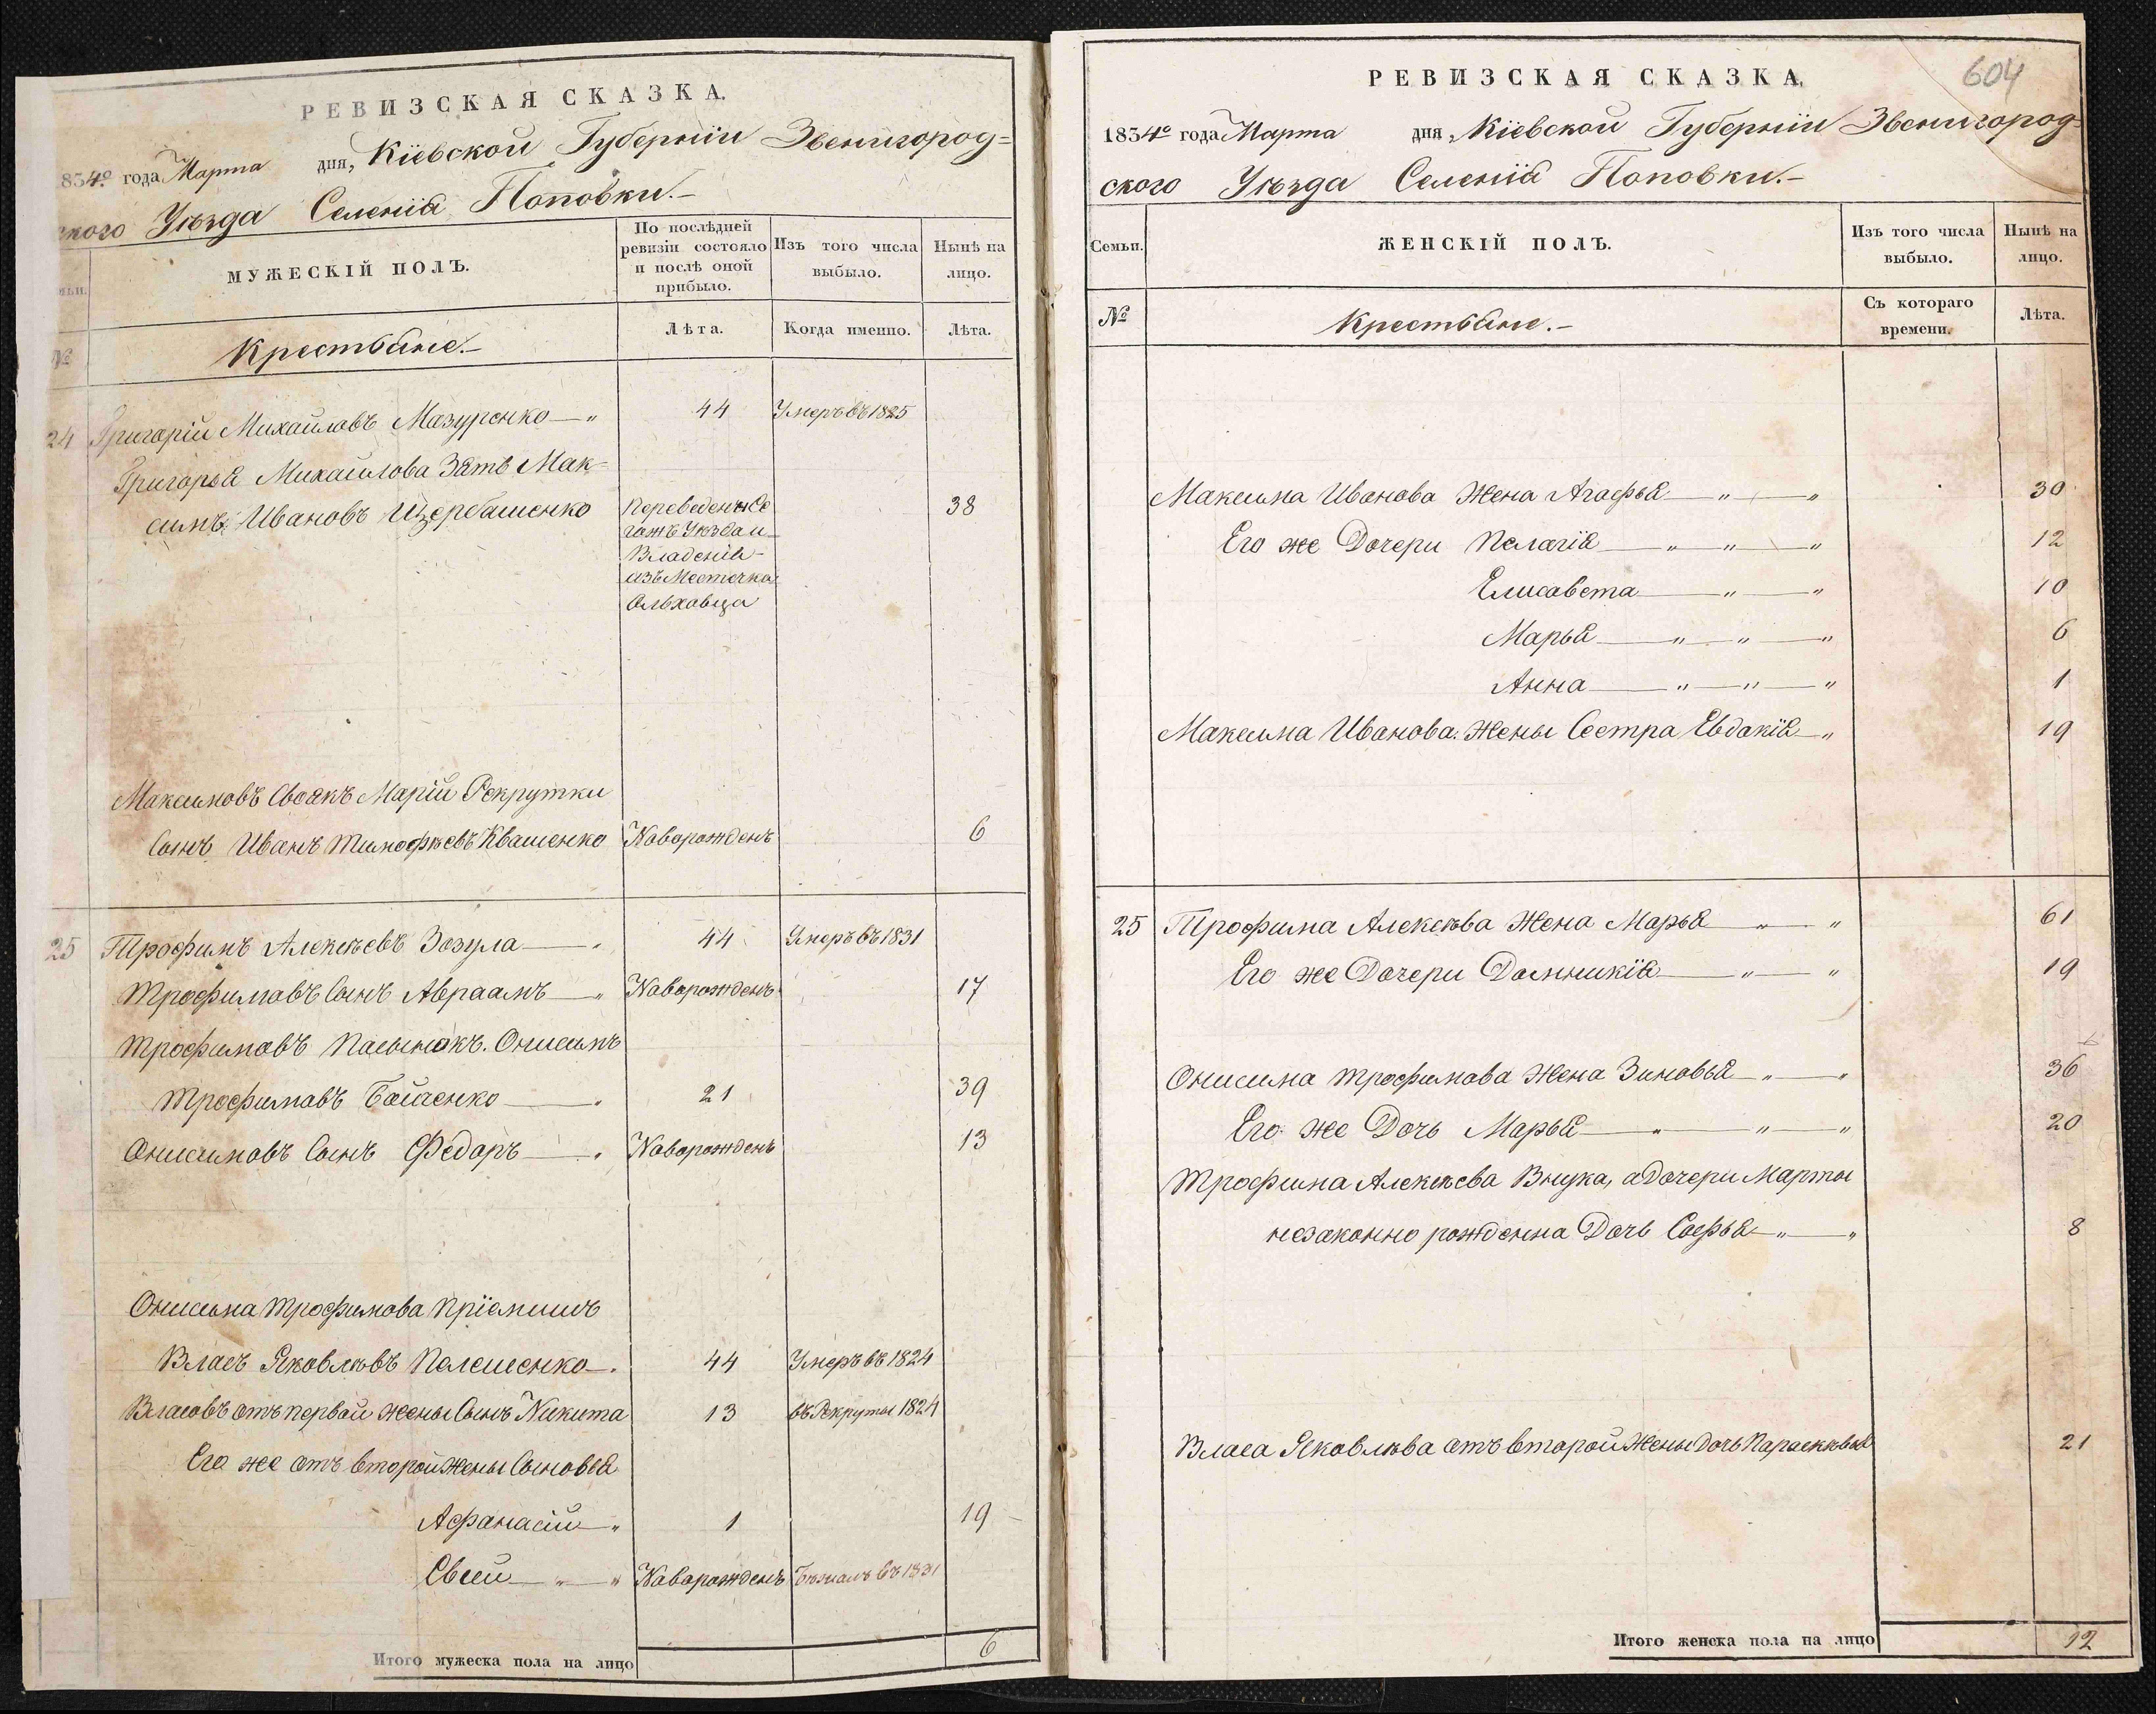 РЕВИЗСКАЯ СКАЗКА.
834го года Марта дня, Кіевской Губерніи Звенигород=
ского Уѣзда Селенія Поповки.-
МУЖЕСКІЙ ПОЛЪ.
По послѣдней ревизіи состояло и послѣ оной прибыло.
Изъ того числа выбыло.
Нынѣ на лицо.
№
Крестьяне.-
Лѣта.
Когда именно.
Лѣта.
24 Григорій Михайловъ Мазуренко 44 Умеръ въ 1825
Григорья Михайлова Зять Мак=
симъ Ивановъ Щербашенко 38
Переведен же
гожъ Уѣзда и
Владенія
изъ Местечка
Ольховца
Максимовъ Своякъ Марій Рекрутки
Сынъ Иванъ Тимофѣевъ Квашенко Новорожденъ 6
25 Трофимъ Алексѣевъ Зозуля 44 Умеръ въ 1831
Трофимовъ Сынъ Авраамъ Новорожденъ 17
Трофимовъ Пасынокъ Онисимъ
Трофимовъ Бойченко 21 39
Онисимовъ Сынъ Федоръ Новорожденъ 13
Онисима Трофимова Пріемышъ
Власъ Яковлѣвъ Пелешенко 44 Умеръ въ 1824
Власовъ отъ первой жены Сынъ Никита 13 въ Рекруты 1824
Его же отъ второй жены Сыновья
Афанасій 1 19
Евсей Новорожденъ Бѣжалъ въ 1831
Итого мужеска пола на лицо 6
РЕВИЗСКАЯ СКАЗКА.
604
1834го года Марта дня, Кіевской Губерніи Звенигород=
ского Уѣзда Селенія Поповки.-
Семьи.
ЖЕНСКІЙ ПОЛЪ.
Изъ того числа выбыло.
Нынѣ на лицо.
№
Крестьяне.-
Съ котораго времени.
Лѣта.
Максима Иванова Жена Агафья 30
Его же Дочери Пелагія 12
Елисавета 10
Марья 6
Анна 1
Максима Иванова Жены Сестра Евдокія 19
25 Трофима Алексѣва Жена Марья 61
Его же Дочери Домникія 19
Онисима Трофимова Жена Зиновья 36
Его же Дочь Марья 20
Трофима Алексѣева Внука, а Дочери Марты
незаконно рожденна Дочь Софья 8
Власа Яковлѣва отъ второй Жены Дочь Парасковья 21
Итого женска пола на лицо 12